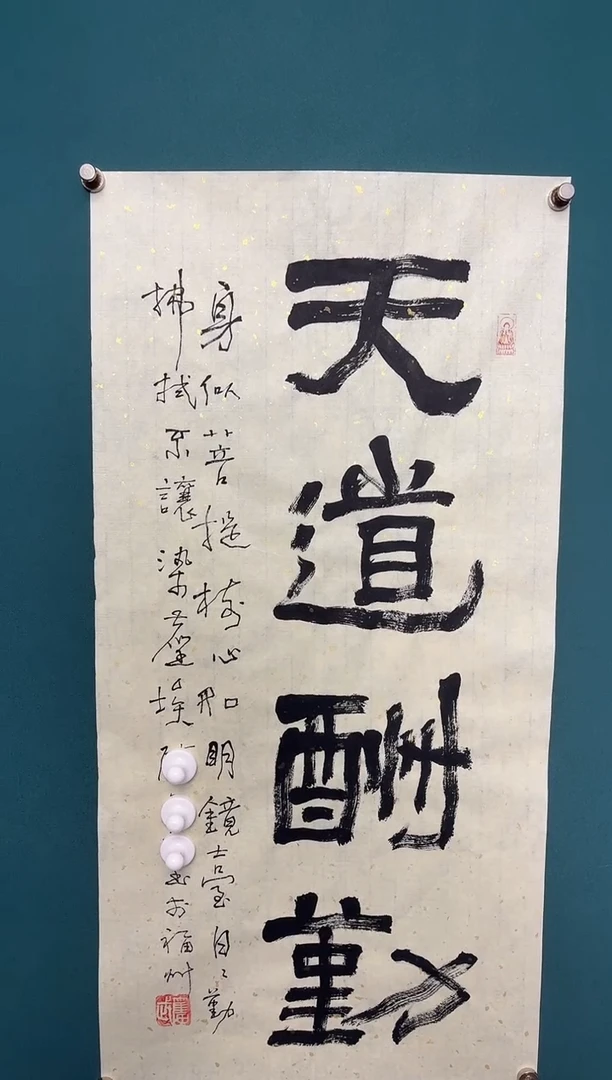 天道酬勤
身似菩提樹心如明鏡臺日〻勤
拂拭不讓染塵埃 书於福州